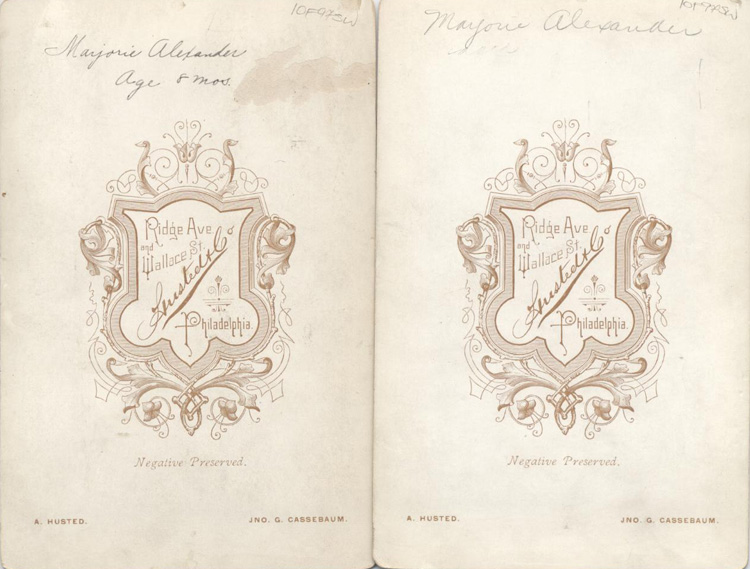 10F97SW
Marjorie Alexander
Age 8 mos.
Ridge Ave
and
Wallace St.
Husted & Co
Philadelphia.
Negative Preserved.
A. HUSTED.
JNO. G. CASSEBAUM.
Marjorie Alexander
Ridge Ave
and
Wallace St.
Husted & Co
Philadelphia.
Negative Preserved.
A. HUSTED.
JNO. G. CASSEBAUM.